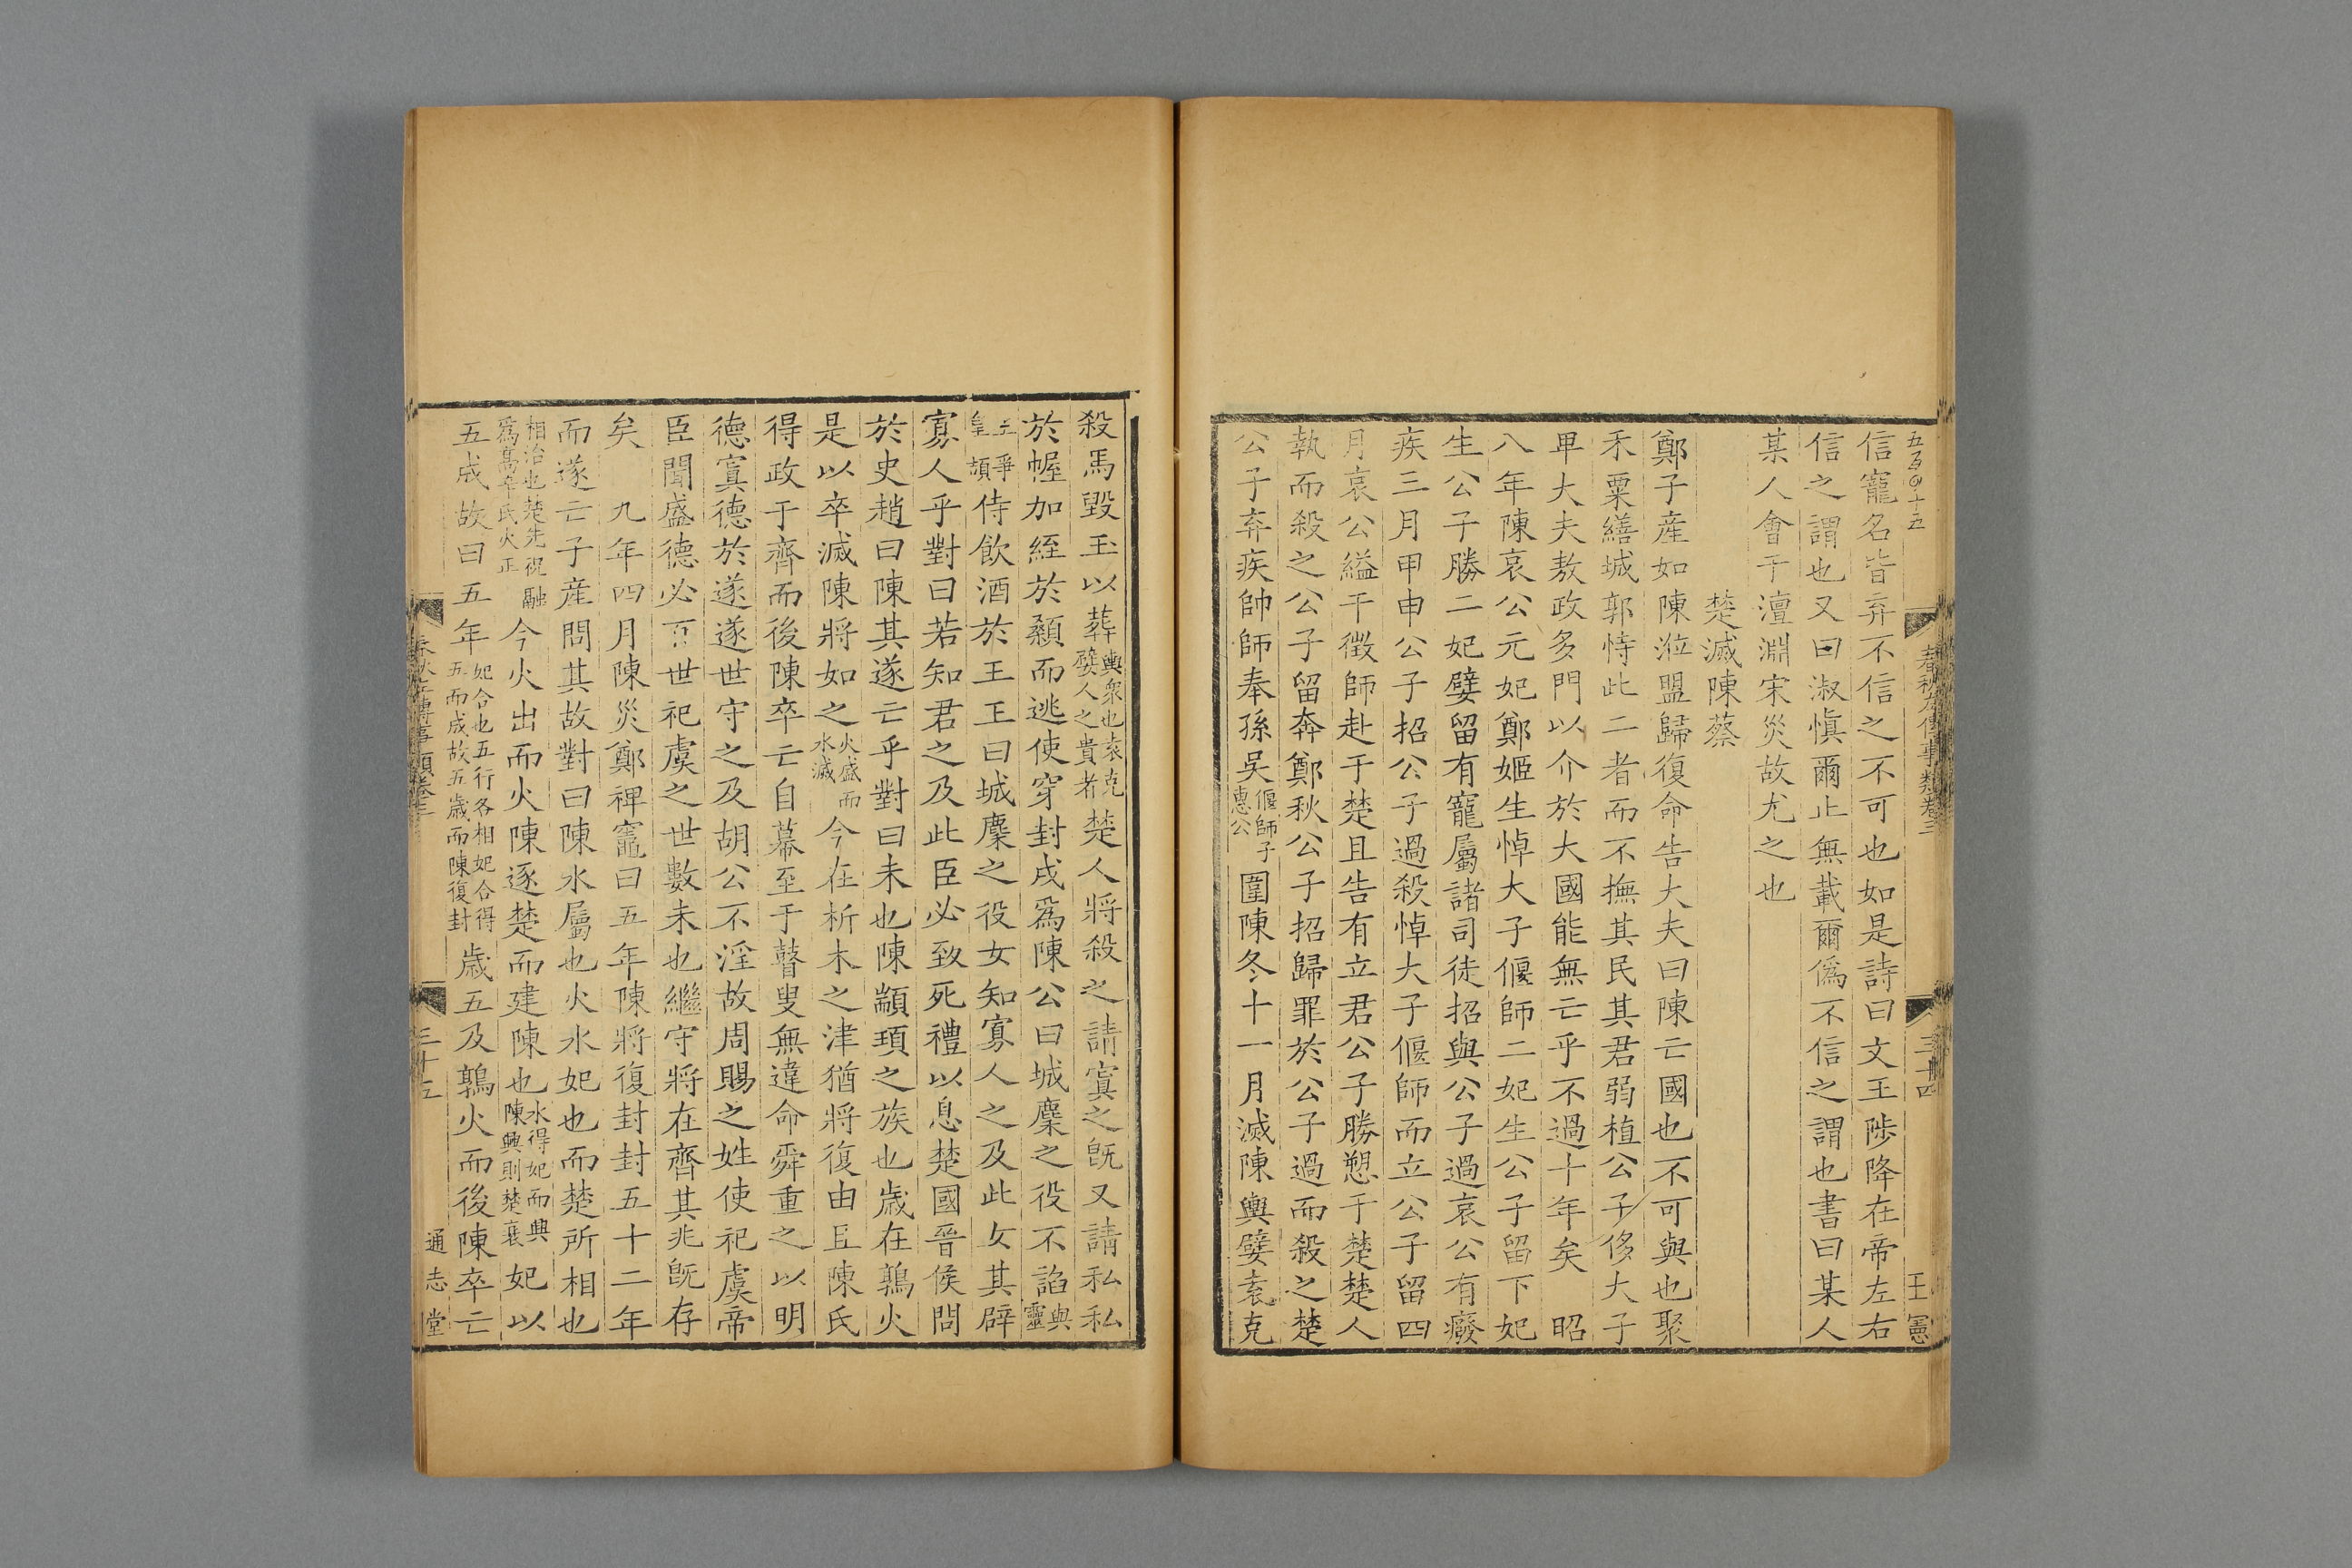 信寵名皆弃不信之不可也如是詩曰文王陟降在帝左右
信之謂也又曰淑慎爾止無載爾僞不信之謂也書曰某人
某人會于澶淵宋災故尤之也
楚滅陳蔡
鄭子産如陳涖盟歸復命告大夫曰陳亡國也不可與也聚
禾粟繕城郭恃此二者而不撫其民其君弱植公子侈大子
卑大夫敖政多門以介於大國能無亡乎不過十年矣 昭
八年陳哀公元妃鄭姬生悼大子偃師二妃生公子留下妃
生公子勝二妃嬖留有寵屬諸司徒招與公子過哀公有癈
疾三月甲申公子招公子過殺悼大子偃師而立公子留四
月哀公縊干徵師赴于楚且告有立君公子勝愬于楚楚人
執而殺之公子留奔鄭秋公子招歸罪於公子過而殺之楚
公子弃疾帥師奉孫吴偃師子惠公圍陳冬十一月滅陳輿嬖袁克
春秋左傳事類卷三
三十四
王憲
殺馬毀玉以葬輿衆也袁克嬖人之貴者楚人將殺之請寘之旣又請私私
於幄加絰於顙而逃使穿封戌爲陳公曰城麇之役不諂與靈
王爭皇頡侍飲酒於王王曰城麇之役女知寡人之及此女其辟
寡人乎對曰若知君之及此臣必致死禮以息楚國晉侯問
於史趙曰陳其遂亡乎對曰未也陳顓頊之族也歲在鶉火
是以卒滅陳將如之火盛而水滅今在析木之津猶將復由且陳氏
得政于齊而後陳卒亡自幕至于瞽叟無違命舜重之以明
德寘德於遂遂世守之及胡公不淫故周賜之姓使祀虞帝
臣聞盛德必百世祀虞之世數未也繼守將在齊其兆旣存
矣 九年四月陳災鄭裨竈曰五年陳將復封封五十二年
而遂亡子産問其故對曰陳水屬也火水妃也而楚所相也
相治也楚先祝融爲高辛氏火正今火出而火陳逐楚而建陳也水得妃而興陳興則楚衰妃以
五成故曰五年妃合也五行各相妃合得五而成故五歲而陳復封歲五及鶉火而後陳卒亡
春秋左傳事類卷三
三十五
通志堂